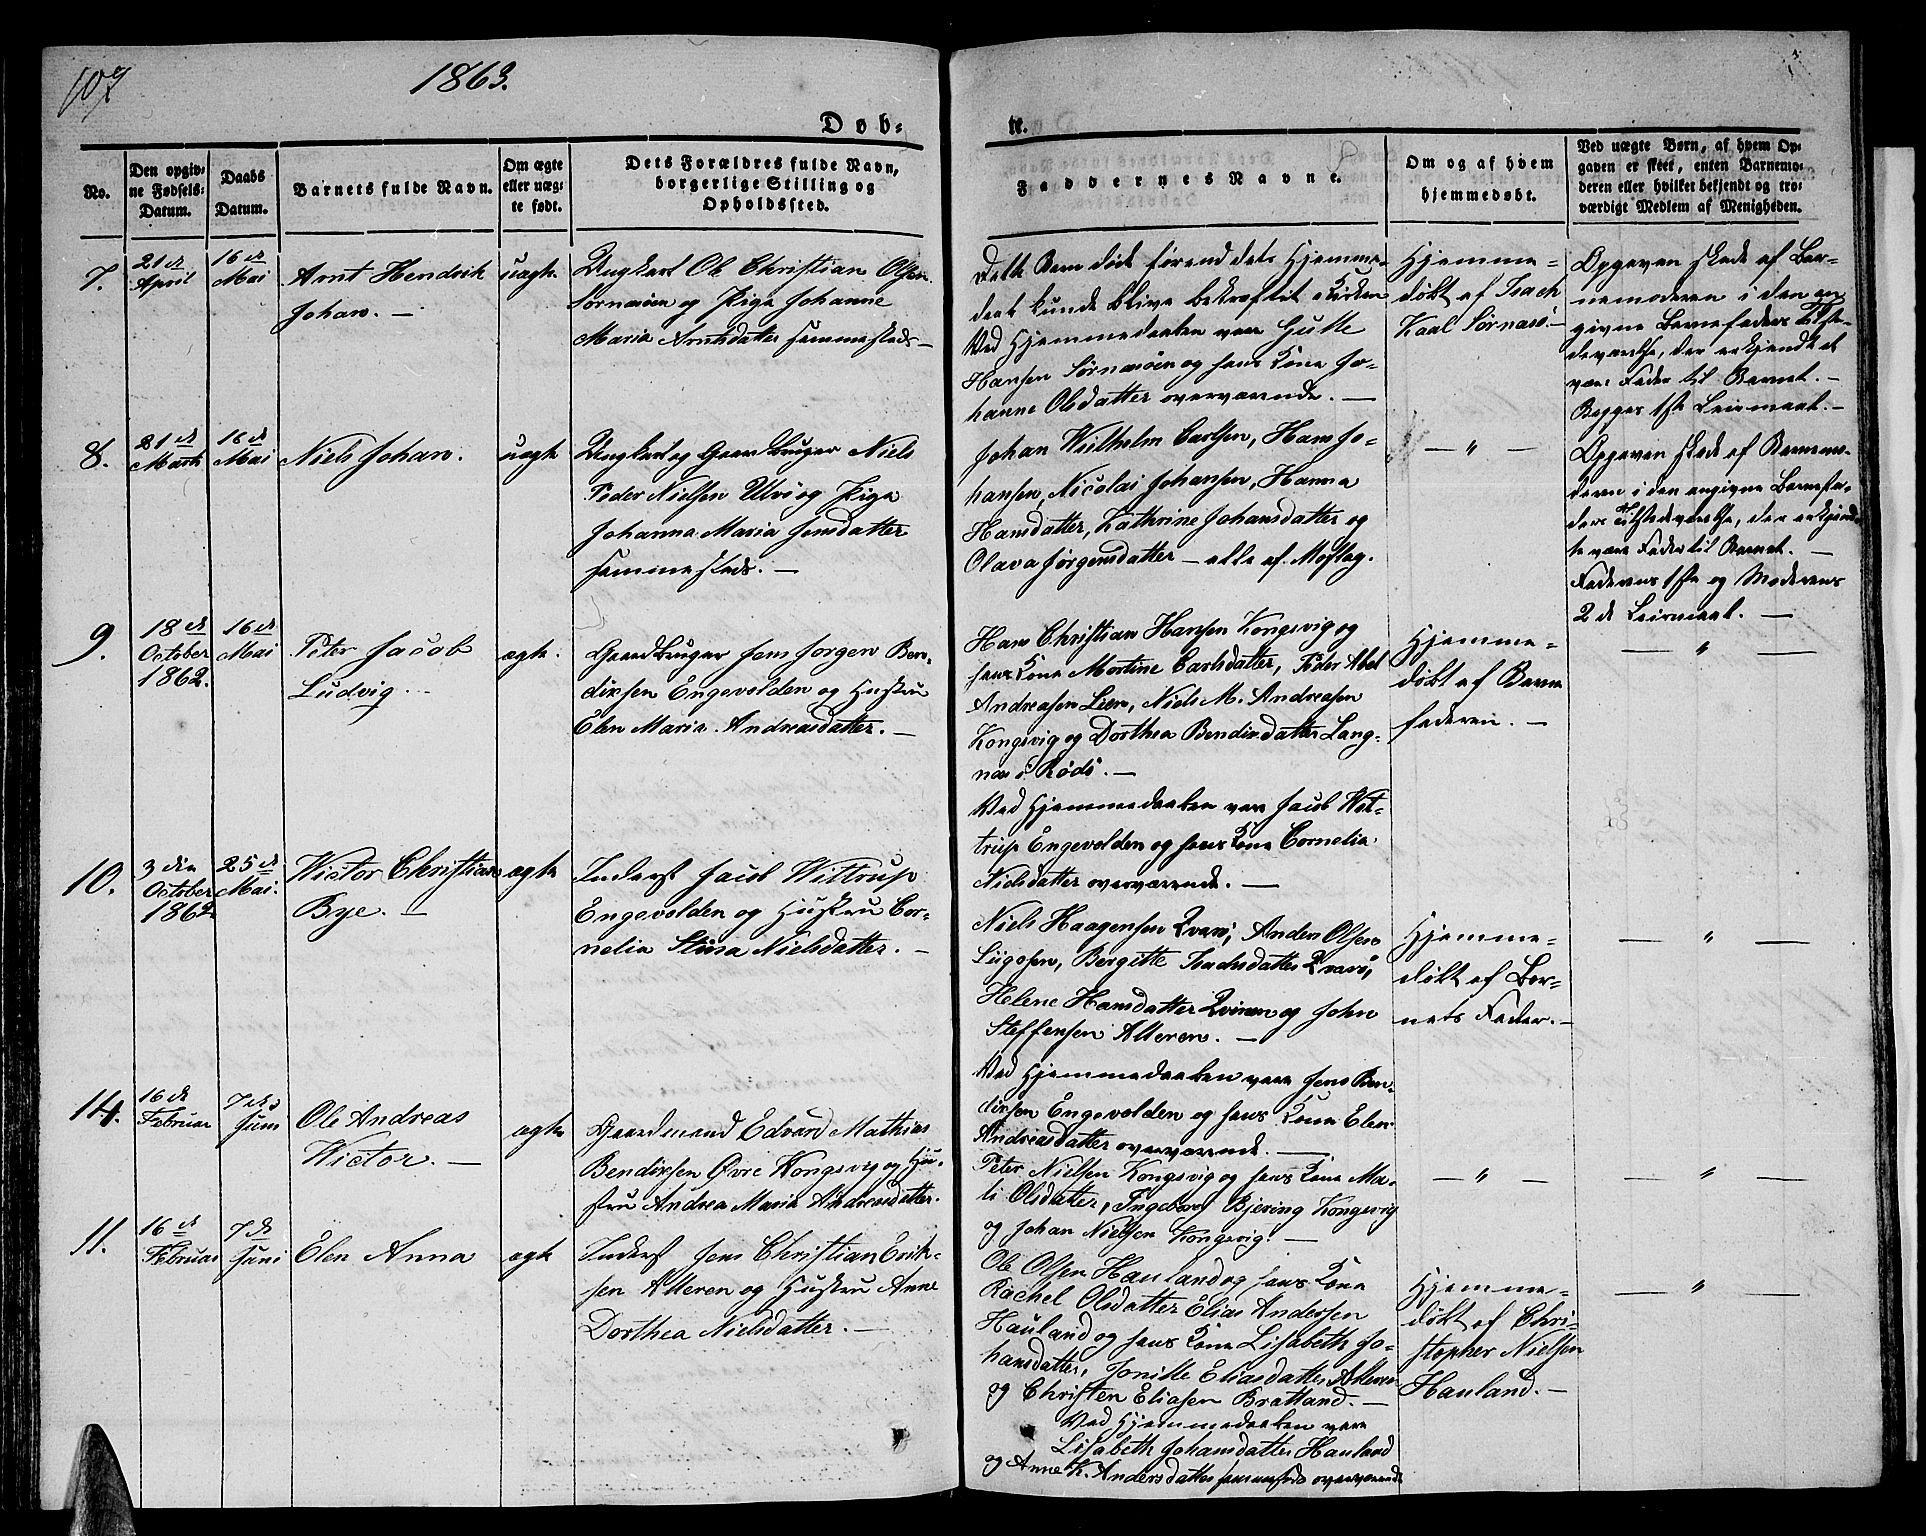 107
1863.
Døb-
te.
No.
Den opgiv-
ne Fødsels-
Datum.
Daabs
Datum.
Barnets fulde Navn.
Om ægte
eller uæg-
te født.
Dets Forældres fulde Navn,
borgerlige Stilling og
Opholdssted.
Faddernes Navne.
Om og af hvem
hjemmedøbt.
Ved uægte Børn, af hvem Op-
gaven er skeet, enten Barnemo-
deren eller hvilket bekjendt og tro-
værdigt Medlem af Menigheden.
7.
21de
April
16de
Mai
Arnt Hendrik
Johan. —
uægte
Ungkarl Ole Christian Olsen
Sørnæsøen og Pige Johanne
Maria Arntsdatter sammesteds —
Dette Barn døde førend dets Hjemme-
daab kunde blive bekræftet i Kirken
Ved Hjemmedaaben vare
Hansen Sørnæsøen og hans Kone Jo-
hanne Olsdatter overværende. —
Hjemme-
døbt af Isach
Karl Sørnæsø. —
Opgaven skede af Bar-
nemoderen i den an-
givne Barnefaders Tilste-
deværelse, der erkjendte at
være Fader til Barnet. —
Begges 1ste Leiermaal. —
8.
21de
Marts
16de
Mai
Niels Johan.
uægte
Ungkarl og Gaardbruger Niels
Peder Nielsen Ulvsvog Pige
Johanna Maria Jensdatter
sammesteds. —
Johan Wilhelm Carlsen, Hans Jo-
hansen, Nicolai Johansen, Hanna
Hansdatter, Kathrine Johansdatter og
Olava Jørgensdatter — alle af Moflag.
— " —
Opgaven skede af Barnemo-
deren i den angivne Barnefa-
ders Tilstedeværelse, der erkjend-
te være Fader til Barnet. —
Faderens 1ste og Moderens
2de Leiermaal. —
9.
18de
October
1862.
16de
Mai
Peter Jacob
Ludvig.
ægte.
Gaardbruger Jens Jørgen Ben-
diksen Engevolden og Hustru
Elen Maria Andreasdatter. —
Hans Christian Hansen Kongsvig og
hans Kone Mortine Carlsdatter, Peder Abel
Andreasen Lien, Niels M. Andreasen
Kongsvig og Dorthea Bendixdatter Lang-
næs i Rødø. —
Ved Hjemmedaaben vare Jacob Wit-
trup Engevolden og hans Kone Cornelia
Nielsdatter overværende. —
Hjemme-
døbt af Barne
faderen. —
— " —
10.
3die
October
1862
25de
Mai.
Wictor Christian
Bye. —
ægte
Inderst Jacob Wittrup
Engevolden og Hustru Cor-
nelia Stina Nielsdatter. —
Niels Haagensen Qvarø, Anders Olsen
Bergitte Isachsdatter Qvarø,
Helene Hansdatter og John
Steffensen Alteren. —
Ved Hjemmedaaben vare Jens Ben-
diksen Engevolden og hans Kone Elen
Andreasdatter overværende. —
Hjemme-
døbt af Bar-
nets Fader. —
— " —
14.
16de
Februar
7de
Juni
Ole Andreas
Wictor. —
ægte
Gaardmand Edvard Mathias
Bendiksen Øvre Kongsvig og Hu-
stru Andrea Maria Andreasdatter.
Peter Nielsen Kongsvig og hans Kone Ma-
li Olsdatter, Ingeborg Bjering Kongsvig
og Johan Nielsen Kongsvig. —
— " —
— " —
11.
16de
Februar
7de
Juni
Elen Anna
ægte
Inderst Jens Christian Erik-
sen Alteren og Hustru Anne
Dorthea Nielsdatter. —
Ole Olsen Hauland og hans Kone
Rachel Olsdatter Elias Andersen
Hauland og hans Kone Lisabeth Jo-
hansdatter, Jonille Eliasdatter Alteren
og Christen Eliasen Bratland. —
Ved Hjemmedaaben vare
Lisabeth Johansdatter Hauland
og Anne K. Andersdatter sammesteds overværende
Hjemme-
døbt af Chri-
stopher Nielsen
Hauland. —
— " —